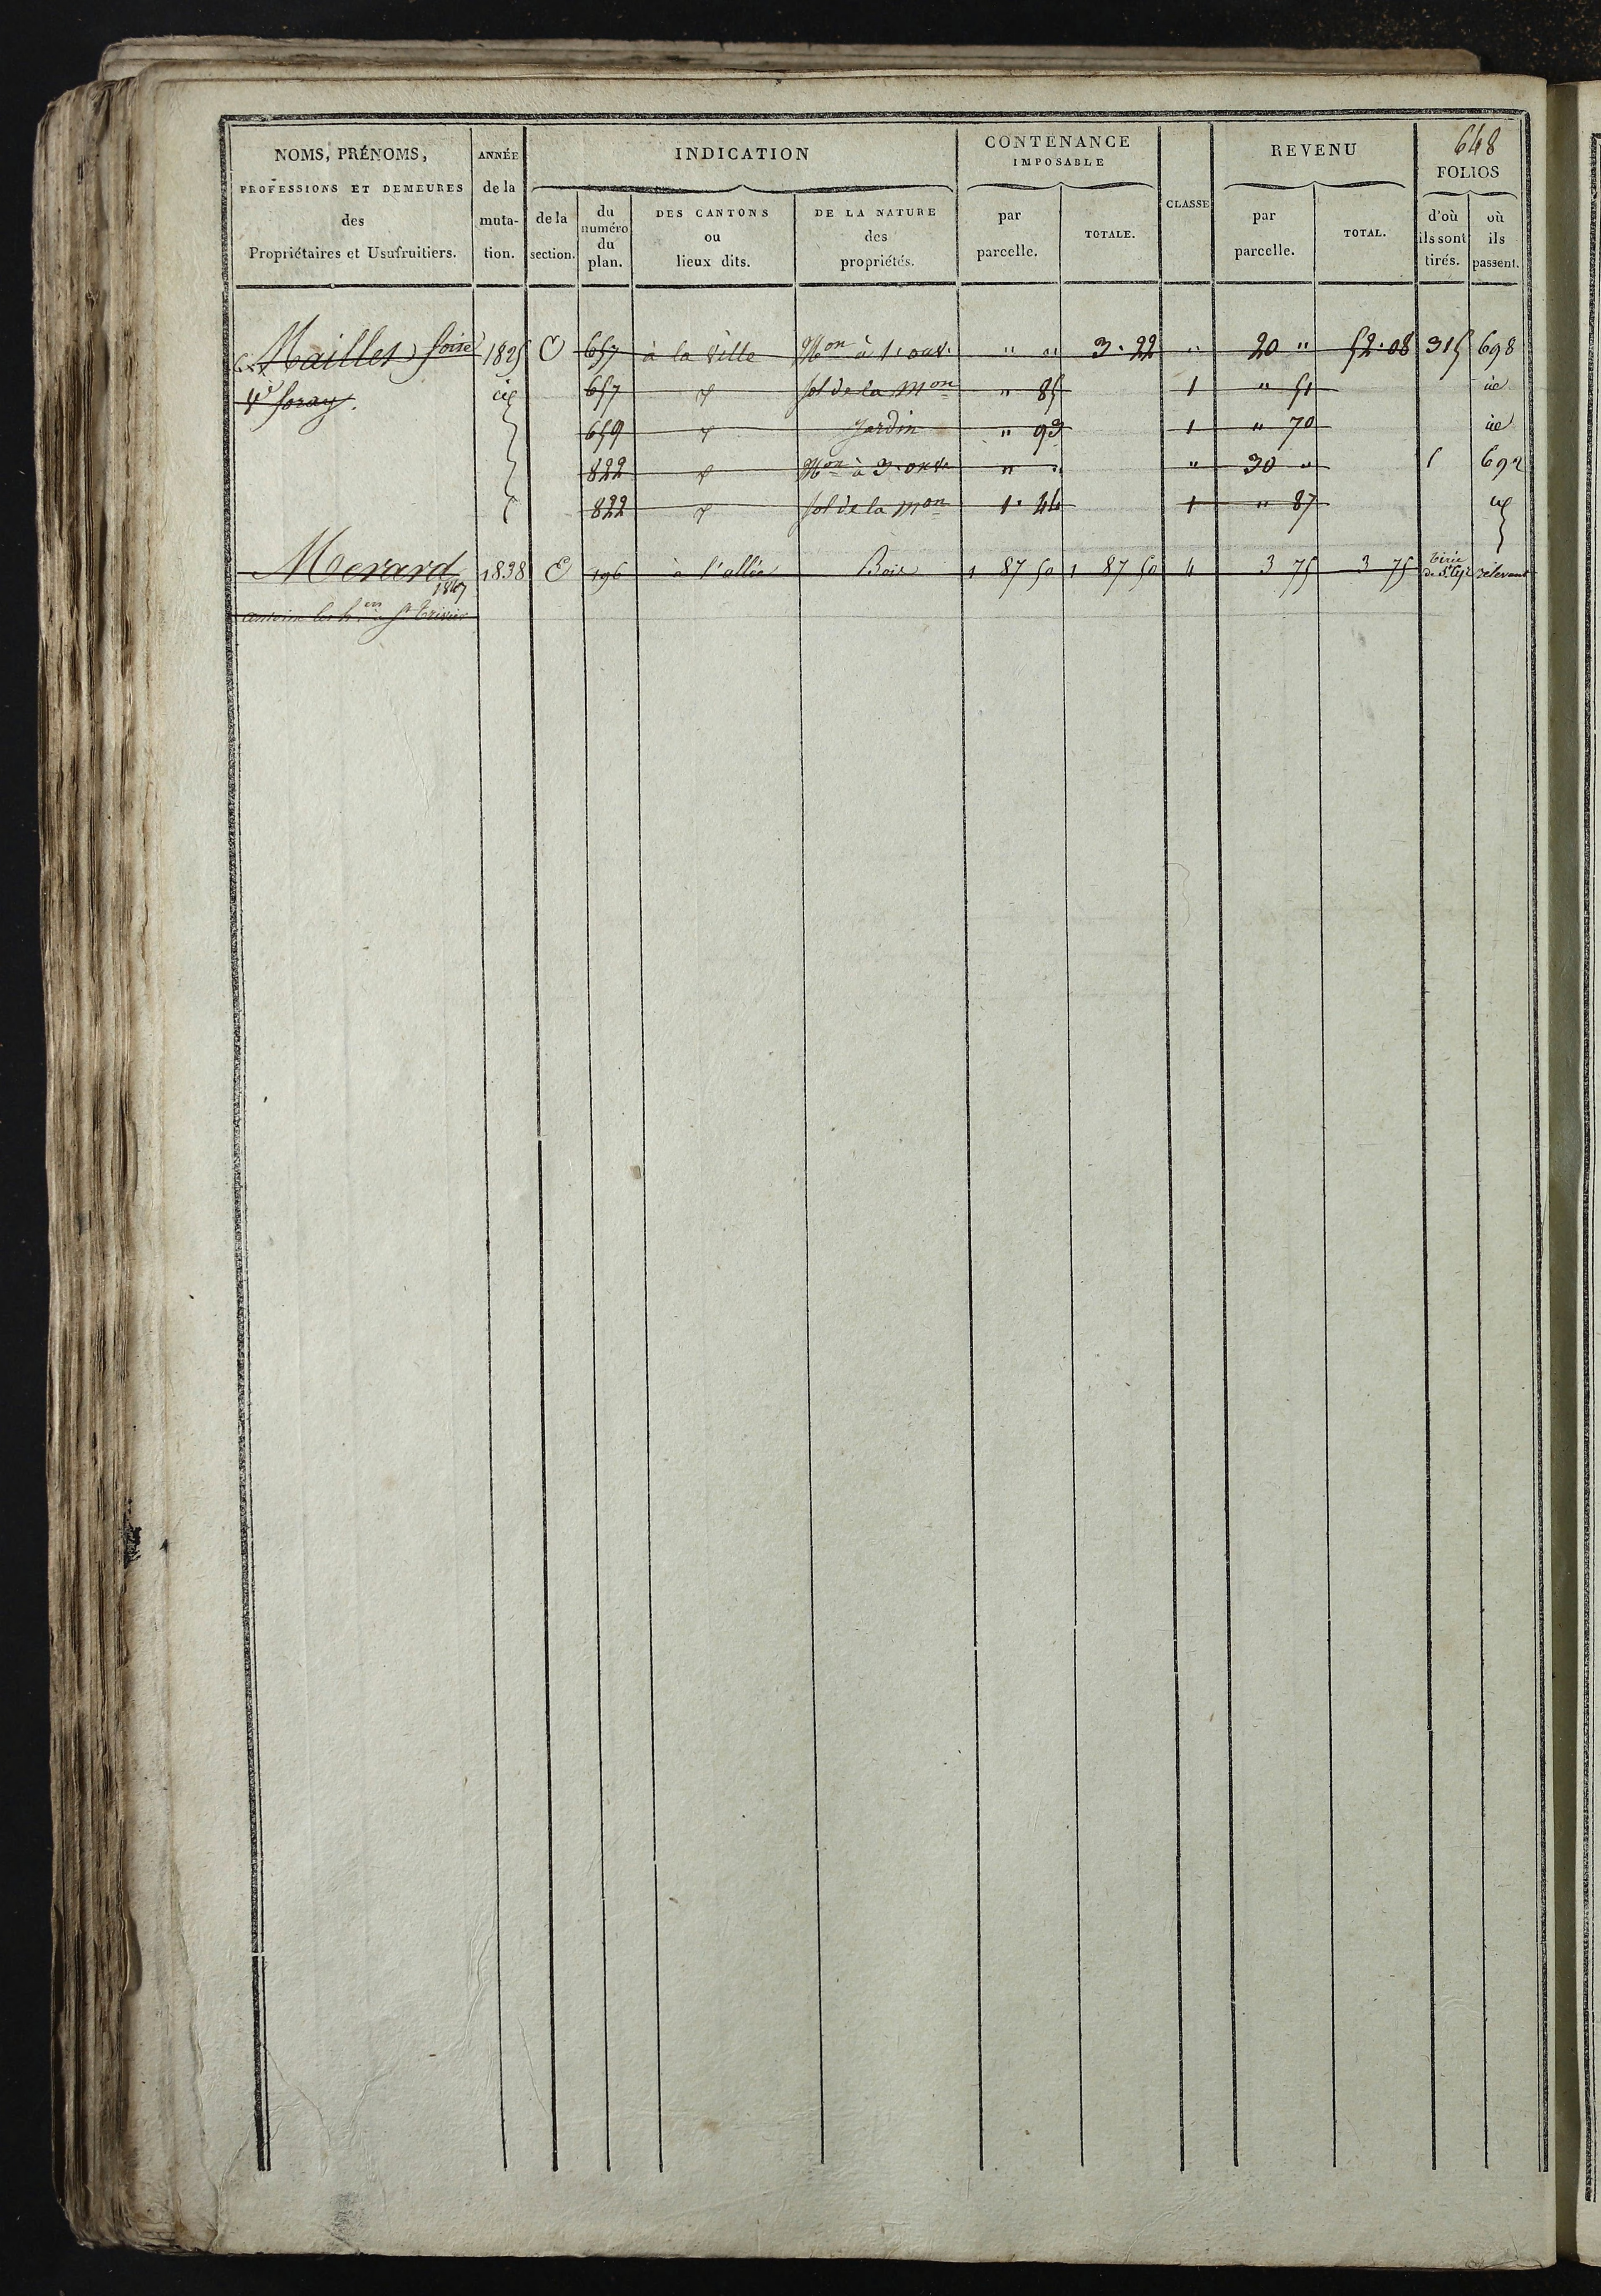 648
NOMS, PRÉNOMS, PROFESSIONS ET DEMEURES des Propriétaires et Usufruitiers.
ANNÉE de la muta-tion.
INDICATION
de la section.
du numéro du plan.
DES CANTONS ou lieux dits.
DE LA NATURE des propriétés.
CONTENANCE IMPOSABLE
par parcelle.
TOTALE.
CLASSE
REVENU
par parcelle.
TOTAL.
FOLIOS
d'où ils sont tirés.
où ils passent.
Maillet 1825 O 657 à la Ville Mon à 1. ouv. " " 3. 22 " 20 " 52. 08 315 698
657 sol de la mon " 85 1 " 51 id
659 Jardin " 93 1 " 70 id
822 Mon à 3. ouv. " " " 30 " 692
822 sol de la mon 1. 44 1 " 87
Morard 1838 E 196 à l'allée Bois 1 87 50 1 87 50 4 3 75 3 75
1847